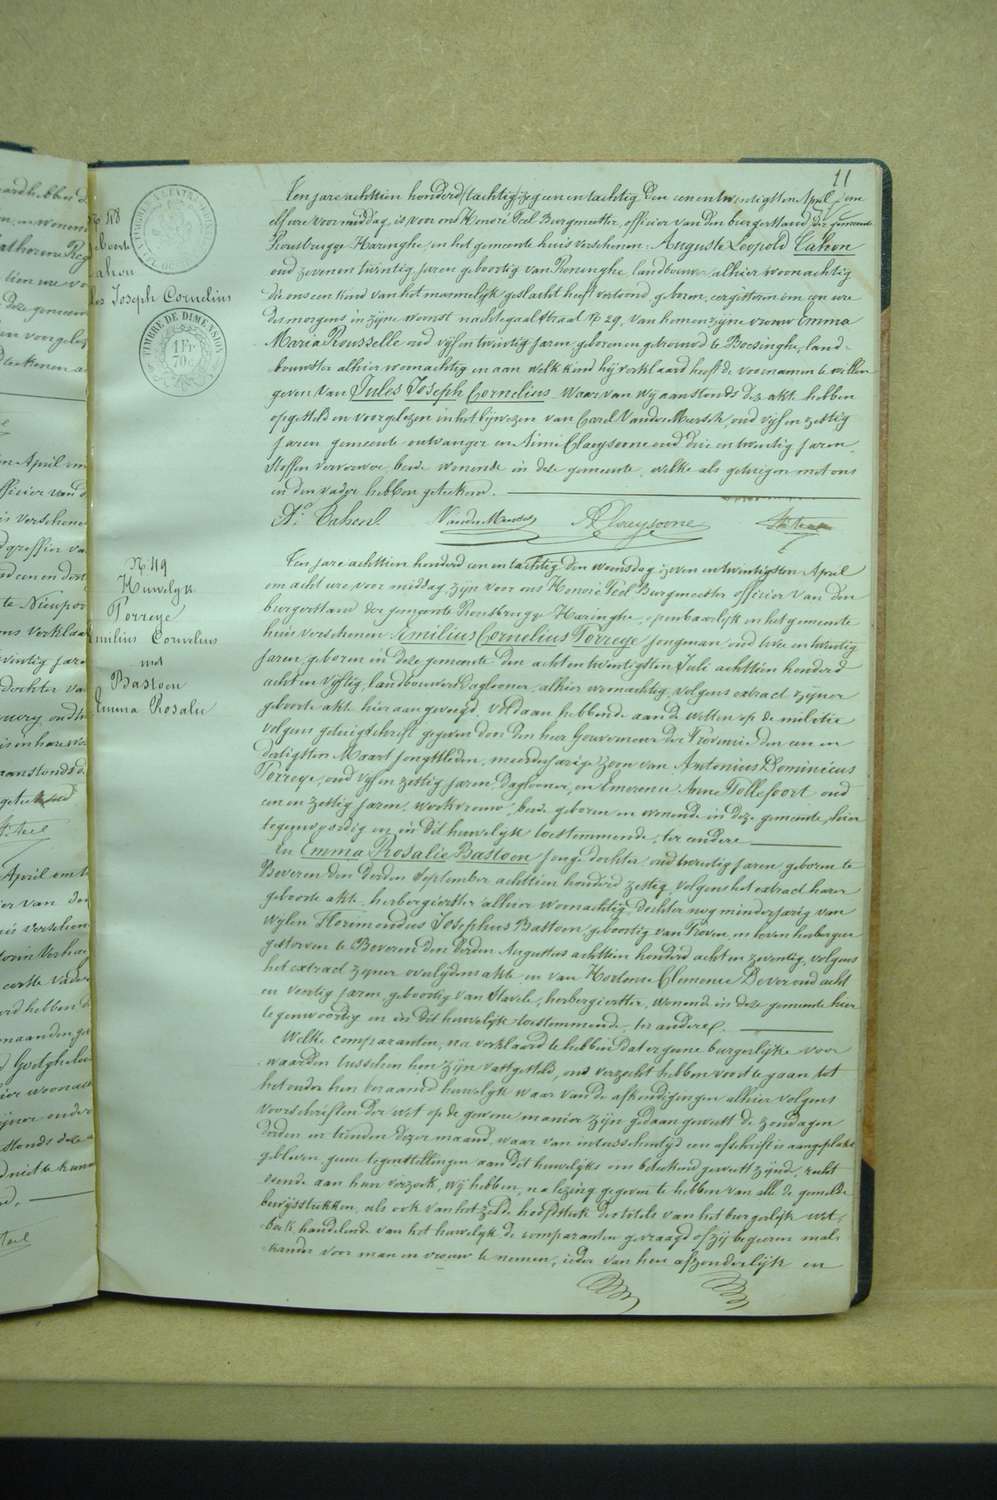 11
N. 48
Geboorte
Cahou
Jules Joseph Cornelius
TIMBRE DE DIMENSION
1 Fr.
70 c
Ten jare achttien honderd een en tachtig den een en twintigsten April, om
elf ure voor middag, is voor ons Honoré Peel Burgmeester, officier van den burgerstand der gemeente
Rousbrugge Haringhe, in het gemeente huis verschenen Auguste Leopold Cahou
oud zeven en twintig jaren geboortig van Reninghe, landbouwer alhier woonachtig
die ons een kind van het mannelijk geslacht heeft vertoond, geboren, eergisteren om een ure
des morgens in zijne woonst nachtegaal straat N. 29, van hem en zijne vrouw Emma
Maria Rousselle oud vijf en twintig jaren geboren en getrouwd te Boesinghe, land-
bouwster alhier woonachtig en aan welk kind hij verklaard heeft de voornamen te willen
geven van Jules Joseph Cornelius. Waar van wij aanstonds deze akt hebben
opgesteld en voorgelezen in het bijwezen van Carel Vander Meersch, oud vijf en zestig
jaren gemeente ontvanger en Aimé Claeysoone oud drie en twintig jaren,
stoffen verwer, beide wonende in deze gemeente, welke als getuigen met ons
en den vader hebben geteekend.
Ate Cahou
A Claeysoone
N. 49
Huwelijk
Torreye
Emilius Cornelius
met
Bastoen
Emma Rosalie
Ten jare achttien honderd een en tachtig den woensdag zeven en twintigsten April
om acht ure voor middag, zijn voor ons Honoré Peel Burgmeester officier van den
burgerstand der gemeente Rousbrugge Haringhe, openbaarlijk in het gemeente
huis verschenen Emilius Cornelius Torreye jongman oud twee en twintig
jaren, geboren in deze gemeente den acht en twintigsten Juli achttien honderd
acht en vijftig, landbouwers dagloner, alhier woonachtig, volgens extract zijner
geboorte akte hier aangevoegd, voldaan hebbende aan de wetten op de militie
volgens getuigschrift gegeven door den heer Gouverneur der Provincie den een en
dertigsten Maart jongstleden, meerderjarige zoon van Antonius Dominicus
Torreye, oud vijf en zestig jaren, dagloner, en Emerence Anne Tollefoort oud
een en zestig jaren, werkvrouw, beide geboren en wonende in deze gemeente, hier
tegenwoordig en in dit huwelijk toestemmende, ter eendere
En Emma Rosalie Bastoen jonge dochter oud twintig jaren geboren te
Beveren den derden September achttien honderd zestig, volgens het extract harer
geboorte akte, herbergierster alhier woonachtig, dochter nog minderjarig van
wijlen Florimondus Josephus Bastoen geboortig van Proven, in leven herbergier
gestorven te Beveren den derden Augustus achttien honderd acht en zeventig, volgens
het extract zijner overlijdens akte en van Hortence Clemence Dever oud acht
en veertig jaren, geboortig van Stavele, herbergierster, wonende in deze gemeente hier
tegenwoordig en in dit huwelijk toestemmende, ter andere.
Welke comparanten, na verklaard te hebben dat er geene burgerlijke voor-
waarden tusschen hen zijn vastgesteld, ons verzocht hebben voort te gaan tot
het onder hen beraamd huwelijk waar van de afkondigingen alhier volgens
voorschriften der wet op de gewone manier zijn gedaan geweest de zondagen
derden en tienden dezer maand, waar van intusschentijd een afschrift is aangeplakt
gebleven, geene tegenstellingen aan dit huwelijks ons beteekend geweest zijnde, recht
doende aan hun verzoek, wij hebben, na lezing gegeven te hebben van alle de gemelde
bewijsstukken, als ook van het zesde hoofdstuk des titels van het burgerlijk wet-
boek handelende van het huwelijk de comparanten gevraagd of zij begeeren mal-
kander voor man en vrouw te nemen, ieder van hen afzonderlijk en